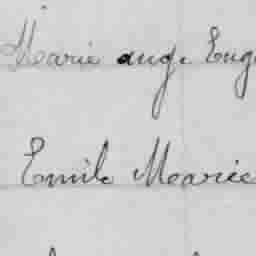 Marie ange Eug
Emile Mearie